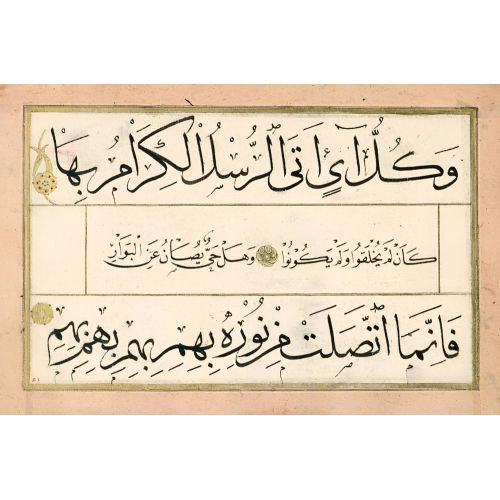 وَكُلُّ آيٍ اَتَى الرُّسْلُ الْكِرَامُ بِهَا
كَاَنْ لَمْ يُخْلَقُوا وَلَمْ يَكُونُوا وَهَلْ حَيٌّ يُصَانُ عَنِ الْبَوَارِ
فَاِنَّمَا اتَّصَلَتْ مِنْ نُورِهِ بِهِمِ بِهِمِ بِهِمِ بِهِمِ